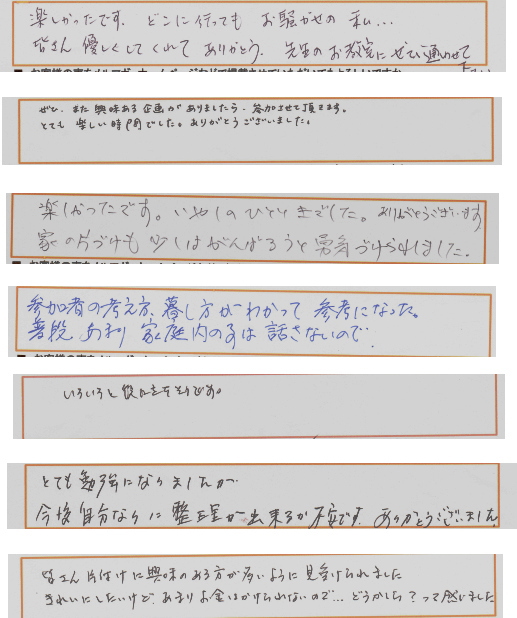 楽しかったです。どこに行っても お騒がせの 私…
皆さん 優しくしてくれて ありがとう. 先生のお教室にぜひ通わせて
下さい
ぜひ、また 興味ある 企画が ありましたら、参加させて 頂きます。
とても 楽しい時間でした。ありがとうございました。
楽しかったです。いやしのひとときでした。ありがとうございます
家の片づけも 少しはがんばろうと 勇気づけられました。
参加者の考え方、暮し方がわかって 参考になった。
普段 あまり 家庭内の事は 話さないので
いろいろと役に立ちそうです。
とても勉強になりましたが
今後自分なりに 整理が出来るか不安です. ありがとうございました.
皆さん 片付けに興味のある方が多いように見受けられました
きれいにしたいけど、あまりお金はかけられないので… どうかしら?って感じました